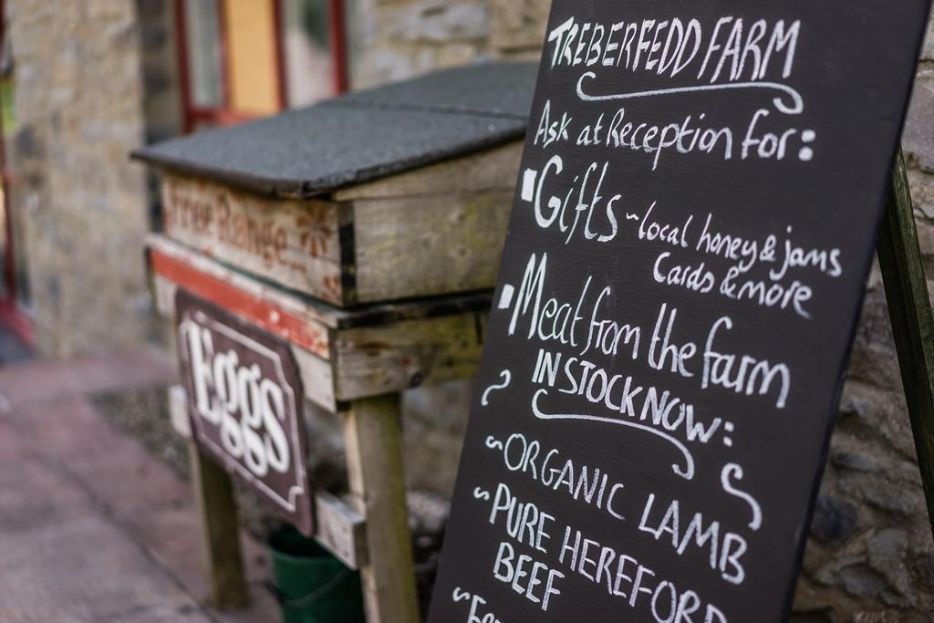 TREBERFEDD FARM
Ask at Reception for:
Gifts ~local honey & jams
Cards & more
Meat from the farm
IN STOCK NOW:
~ORGANIC LAMB
~PURE HEREFORD
BEEF
Free Range
Eggs